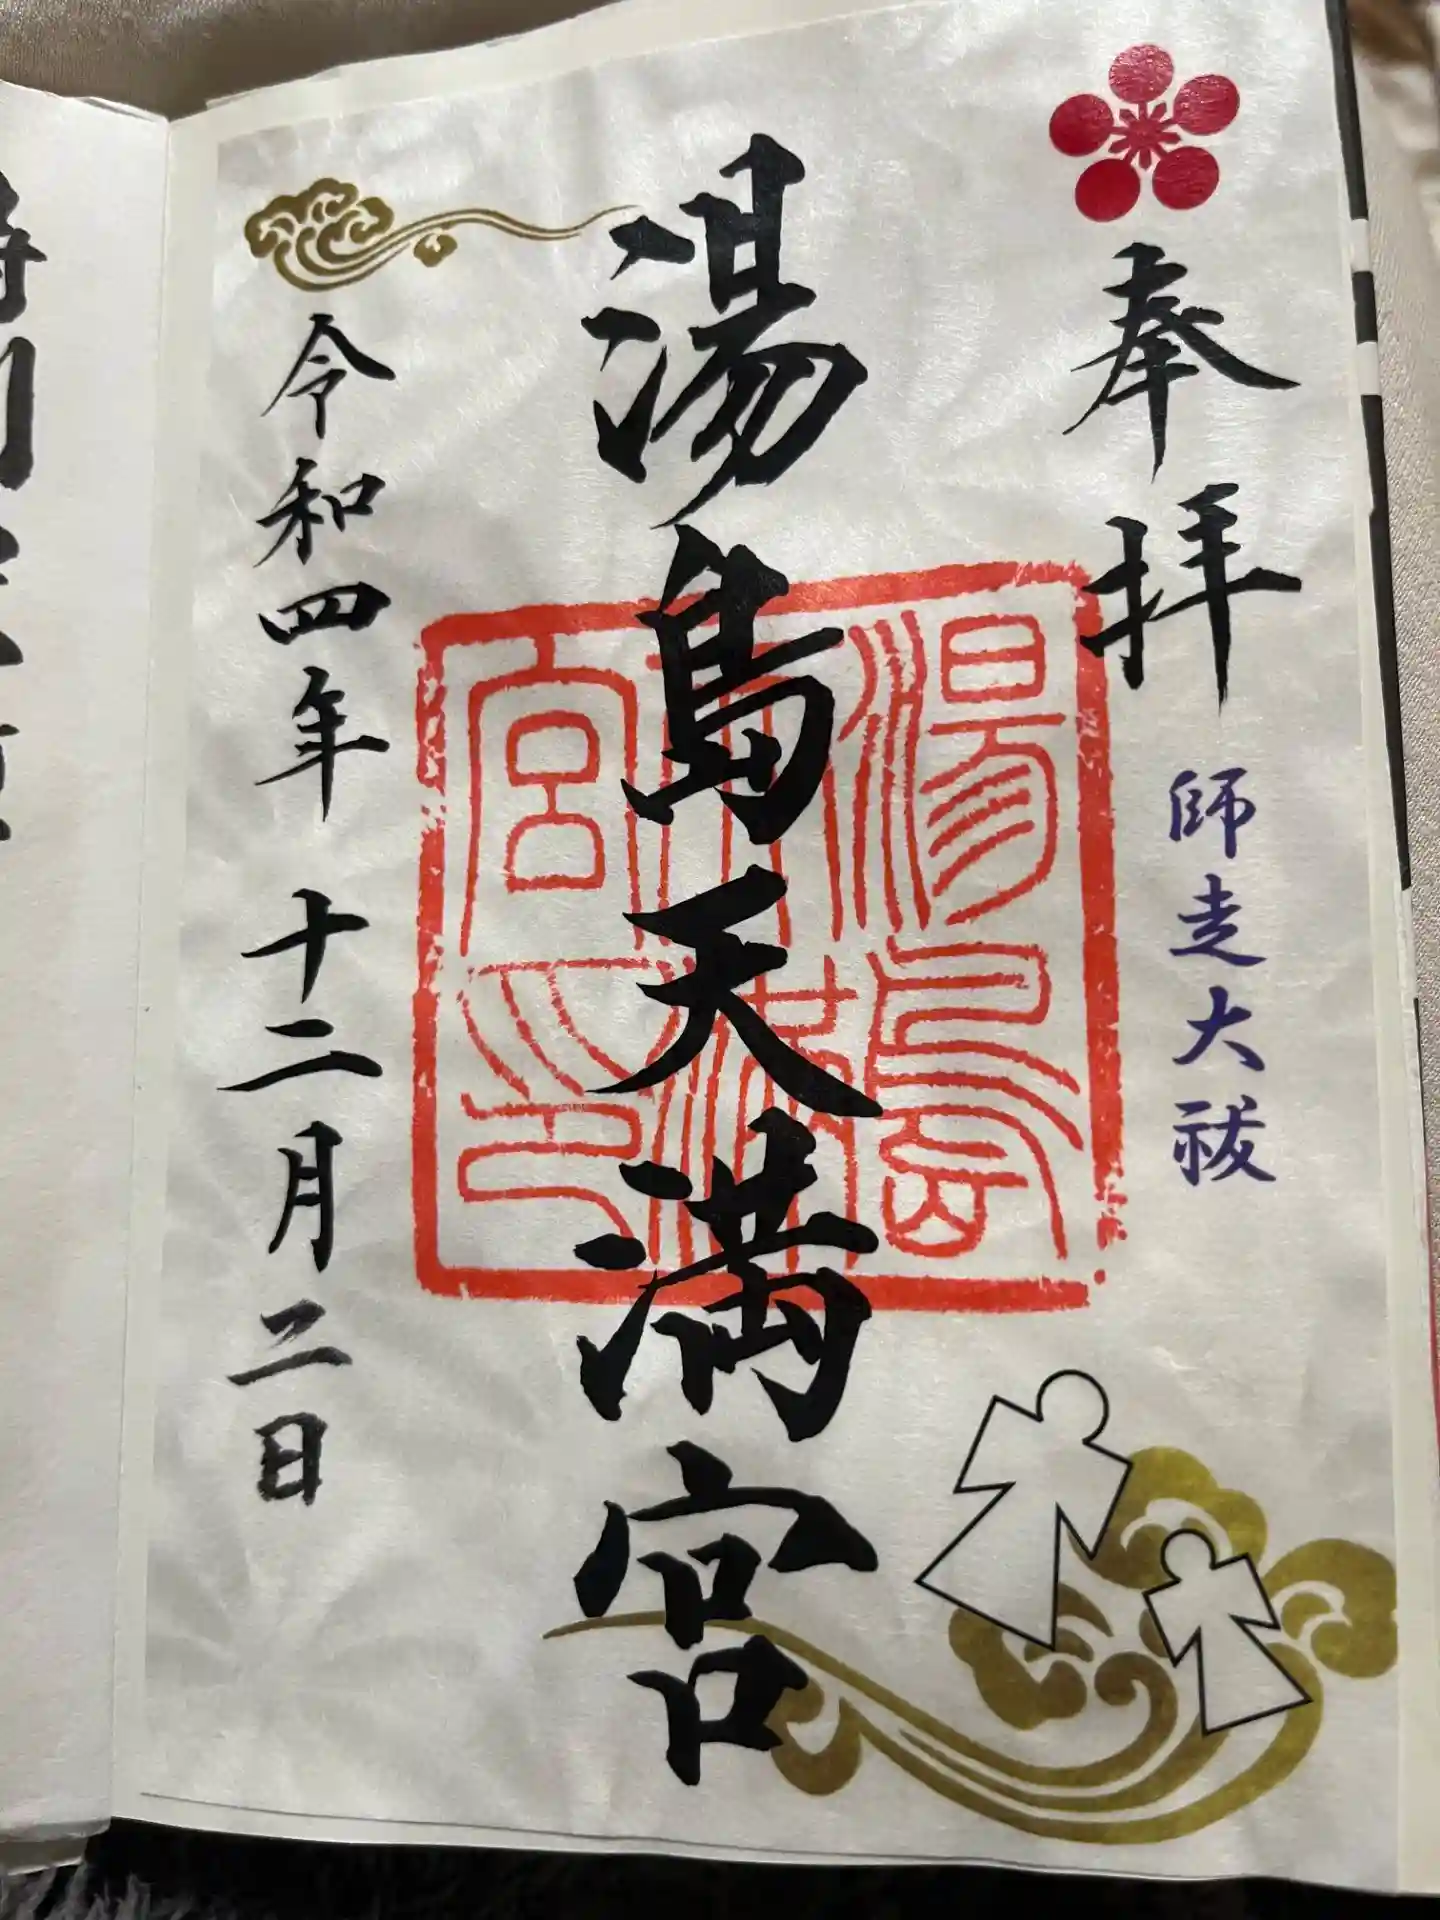 奉拝
師走大祓
湯島天満宮
湯島天満宮之印
令和四年 十二月 二日